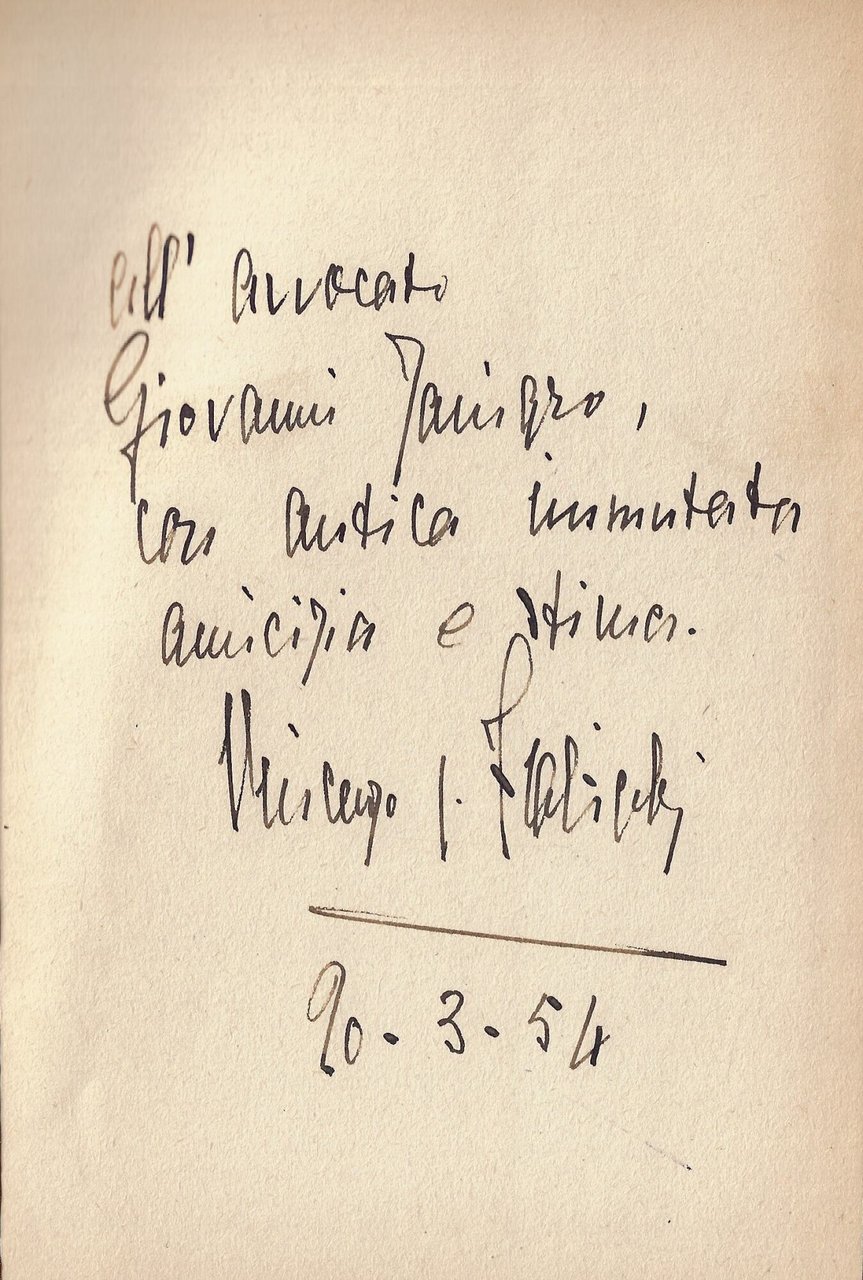 all' avvocato
Giovanni Janigro,
con antica immutata
amicizia e stima.
Vincenzo
20-3-54